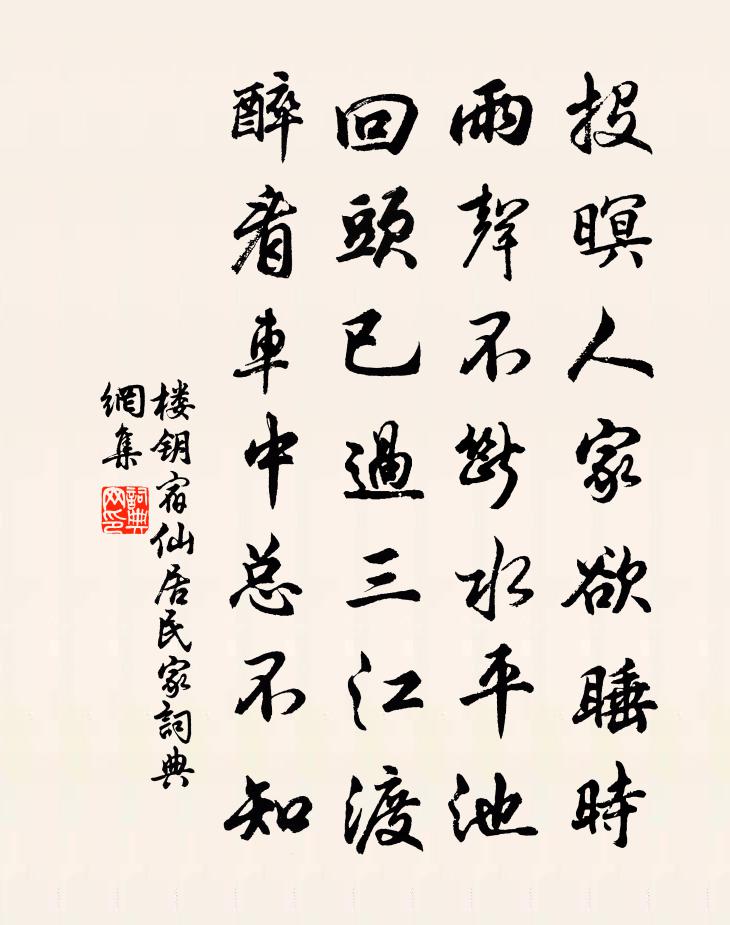 投暝人家欲睡時
雨聲不斷水平池
回頭已過三江渡
醉看車中总不知
楼钥宿仙居民家詞典
網集
詞典网印